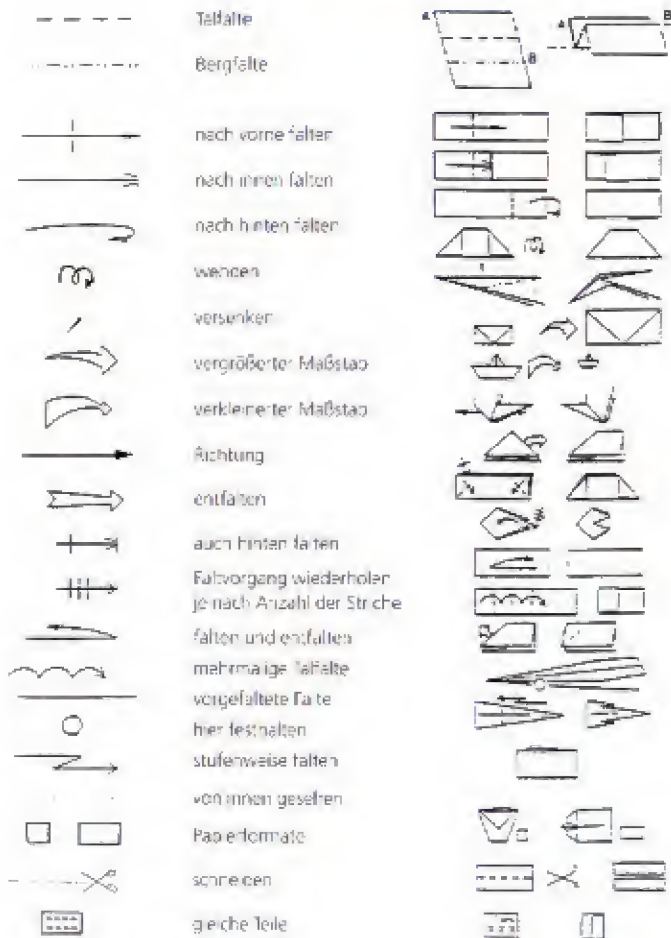 Talfalte
A
B
A
B
Bergfalte
nach vorne falten
nach innen falten
nach hinten falten
wenden
versenken
vergrößerter Maßstab
verkleinerter Maßstab
Richtung
entfalten
auch hinten falten
Faltvorgang wiederholen
je nach Anzahl der Striche
falten und entfalten
mehrmalige Talfalte
vorgefaltete Falte
hier festhalten
stufenweise falten
von innen gesehen
Papierformate
schneiden
gleiche Teile